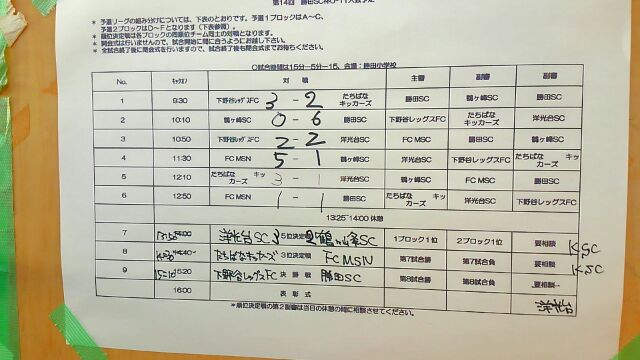 第14回 勝田SC杯U-11大会予定
* 予選リーグの組み分けについては、下表のとおりです。予選1ブロックはA~C、
予選2ブロックはD~Fとなります(下表参照)。
* 順位決定戦は各ブロックの同順位チーム同士の対戦となります。
* 開会式は行いませんので、試合開始に間に合うようにお越し下さい。
* 全試合終了後に閉会式を行いますので、試合終了後も閉会式までお待ちください。
○試合時間は15分-5分-15、会場:勝田小学校
No. キックオフ 対 戦 主審 副審 副審
1 9:30 下野谷レッグスFC 3 - 2 たちばなキッカーズ 勝田SC 鶴ヶ峰SC 勝田SC
2 10:10 鶴ヶ峰SC 0 - 6 勝田SC 下野谷レッグスFC たちばなキッカーズ 洋光台SC
3 10:50 下野谷レッグスFC 2 - 2 洋光台SC FC MSC 勝田SC 鶴ヶ峰SC
4 11:30 FC MSN 5 - 1 鶴ヶ峰SC 洋光台SC 下野谷レッグスFC たちばなキッカーズ
5 12:10 たちばな キッカーズ 3 - 1 洋光台SC 鶴ヶ峰SC FC MSC 勝田SC
6 12:50 FC MSN 1 - 1 勝田SC たちばな キッカーズ 洋光台SC 下野谷レッグスFC
13:25~14:00 休憩
7 13:50 14:00 洋光台SC 3 5位決定戦 鶴ヶ峰SC 1ブロック1位 2ブロック1位 要相談 KSC
8 14:40~ たちばなキッカーズ 3位決定戦 FCMSN 第7試合勝 第7試合負 要相談 KSC
9 15:10 15:20 下野谷レッグスFC 決 勝 戦 勝田SC 第8試合勝 第8試合負 要相談 洋光台
16:00 表 彰 式
*順位決定戦の第2副審は当日の休憩の間に相談させてください。